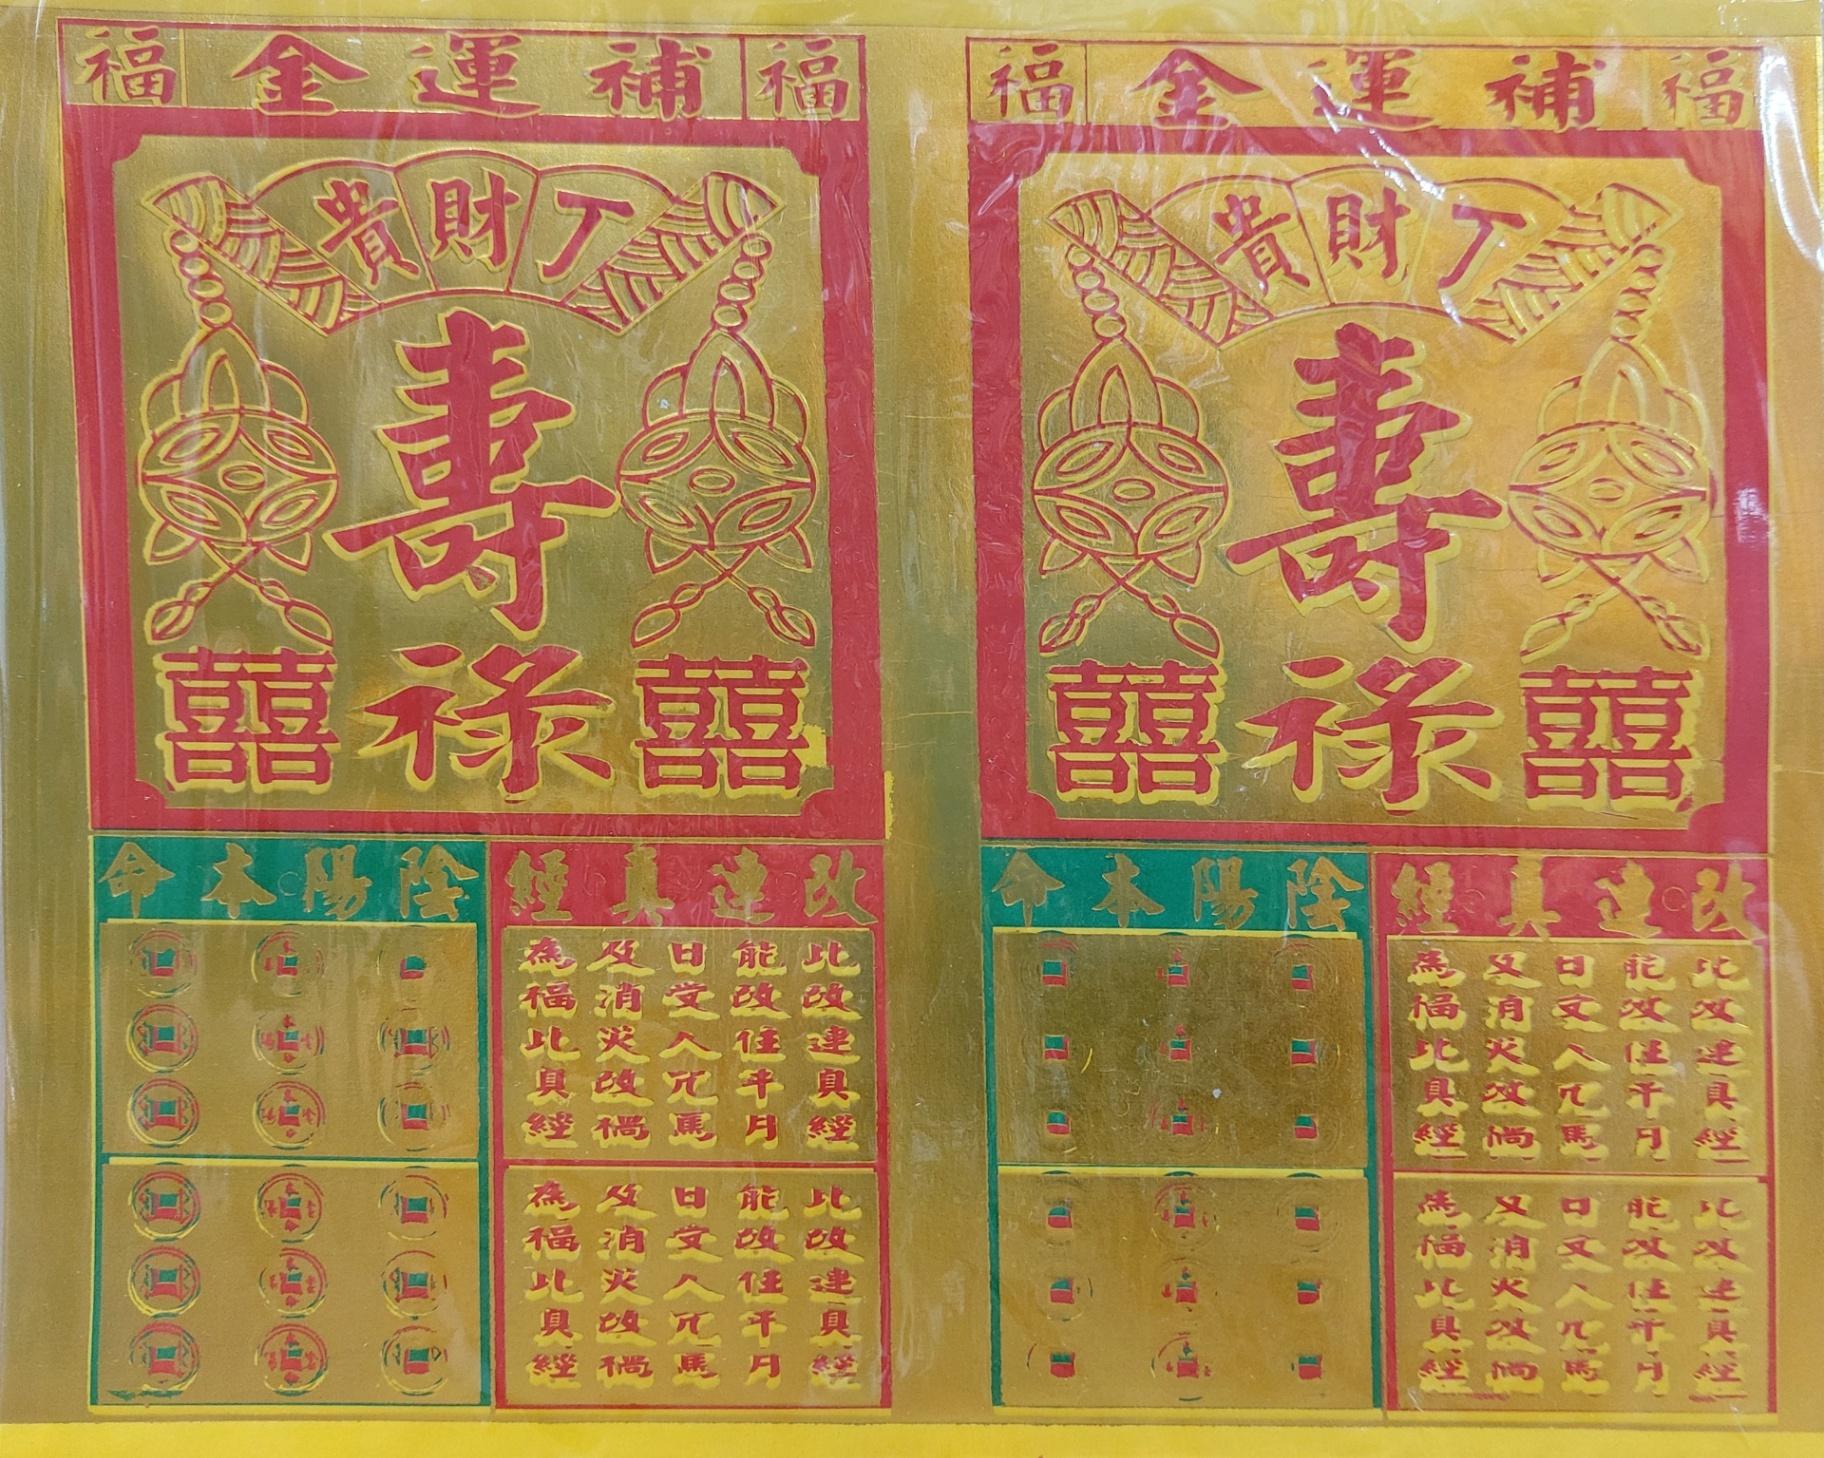 福 補運金 福
丁財貴
壽
囍 祿 囍
改連真經
比改連真經
能改住年月
日受人冗馬
及消災改禍
為福比真經
比改連真經
能改住年月
日受人冗馬
及消災改禍
為福比真經
陰陽本命
福 補運金 福
丁財貴
壽
囍 祿 囍
改連真經
比改連真經
能改住年月
日受人冗馬
及消災改禍
為福比真經
比改連真經
能改住年月
日受人冗馬
及消災改禍
為福比真經
陰陽本命